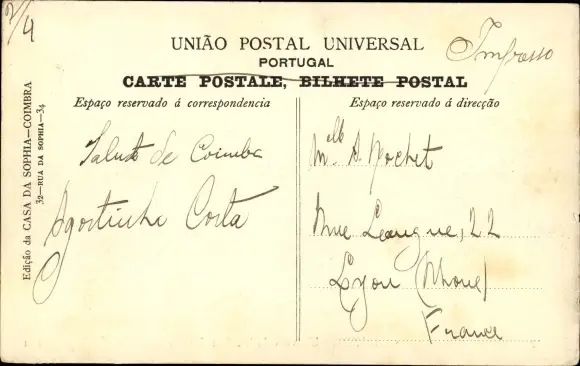 2/4
UNIÃO POSTAL UNIVERSAL
PORTUGAL
CARTE POSTALE, BILHETE POSTAL
Impresso
Espaço reservado á correspondencia
Espaço reservado á direcção
Edição da CASA DA SOPHIA—COIMBRA
32—RUA DA SOPHIA—34
Salut de Coimbra
Agostinho Costa
Mlle A. Rochet
Rue 22
Lyon (Rhone)
France